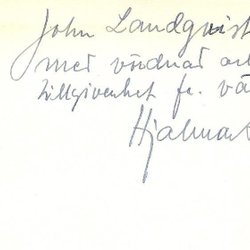 John Landqvist
med vördnad och
tillgivenhet fr. vä
Hjalmar